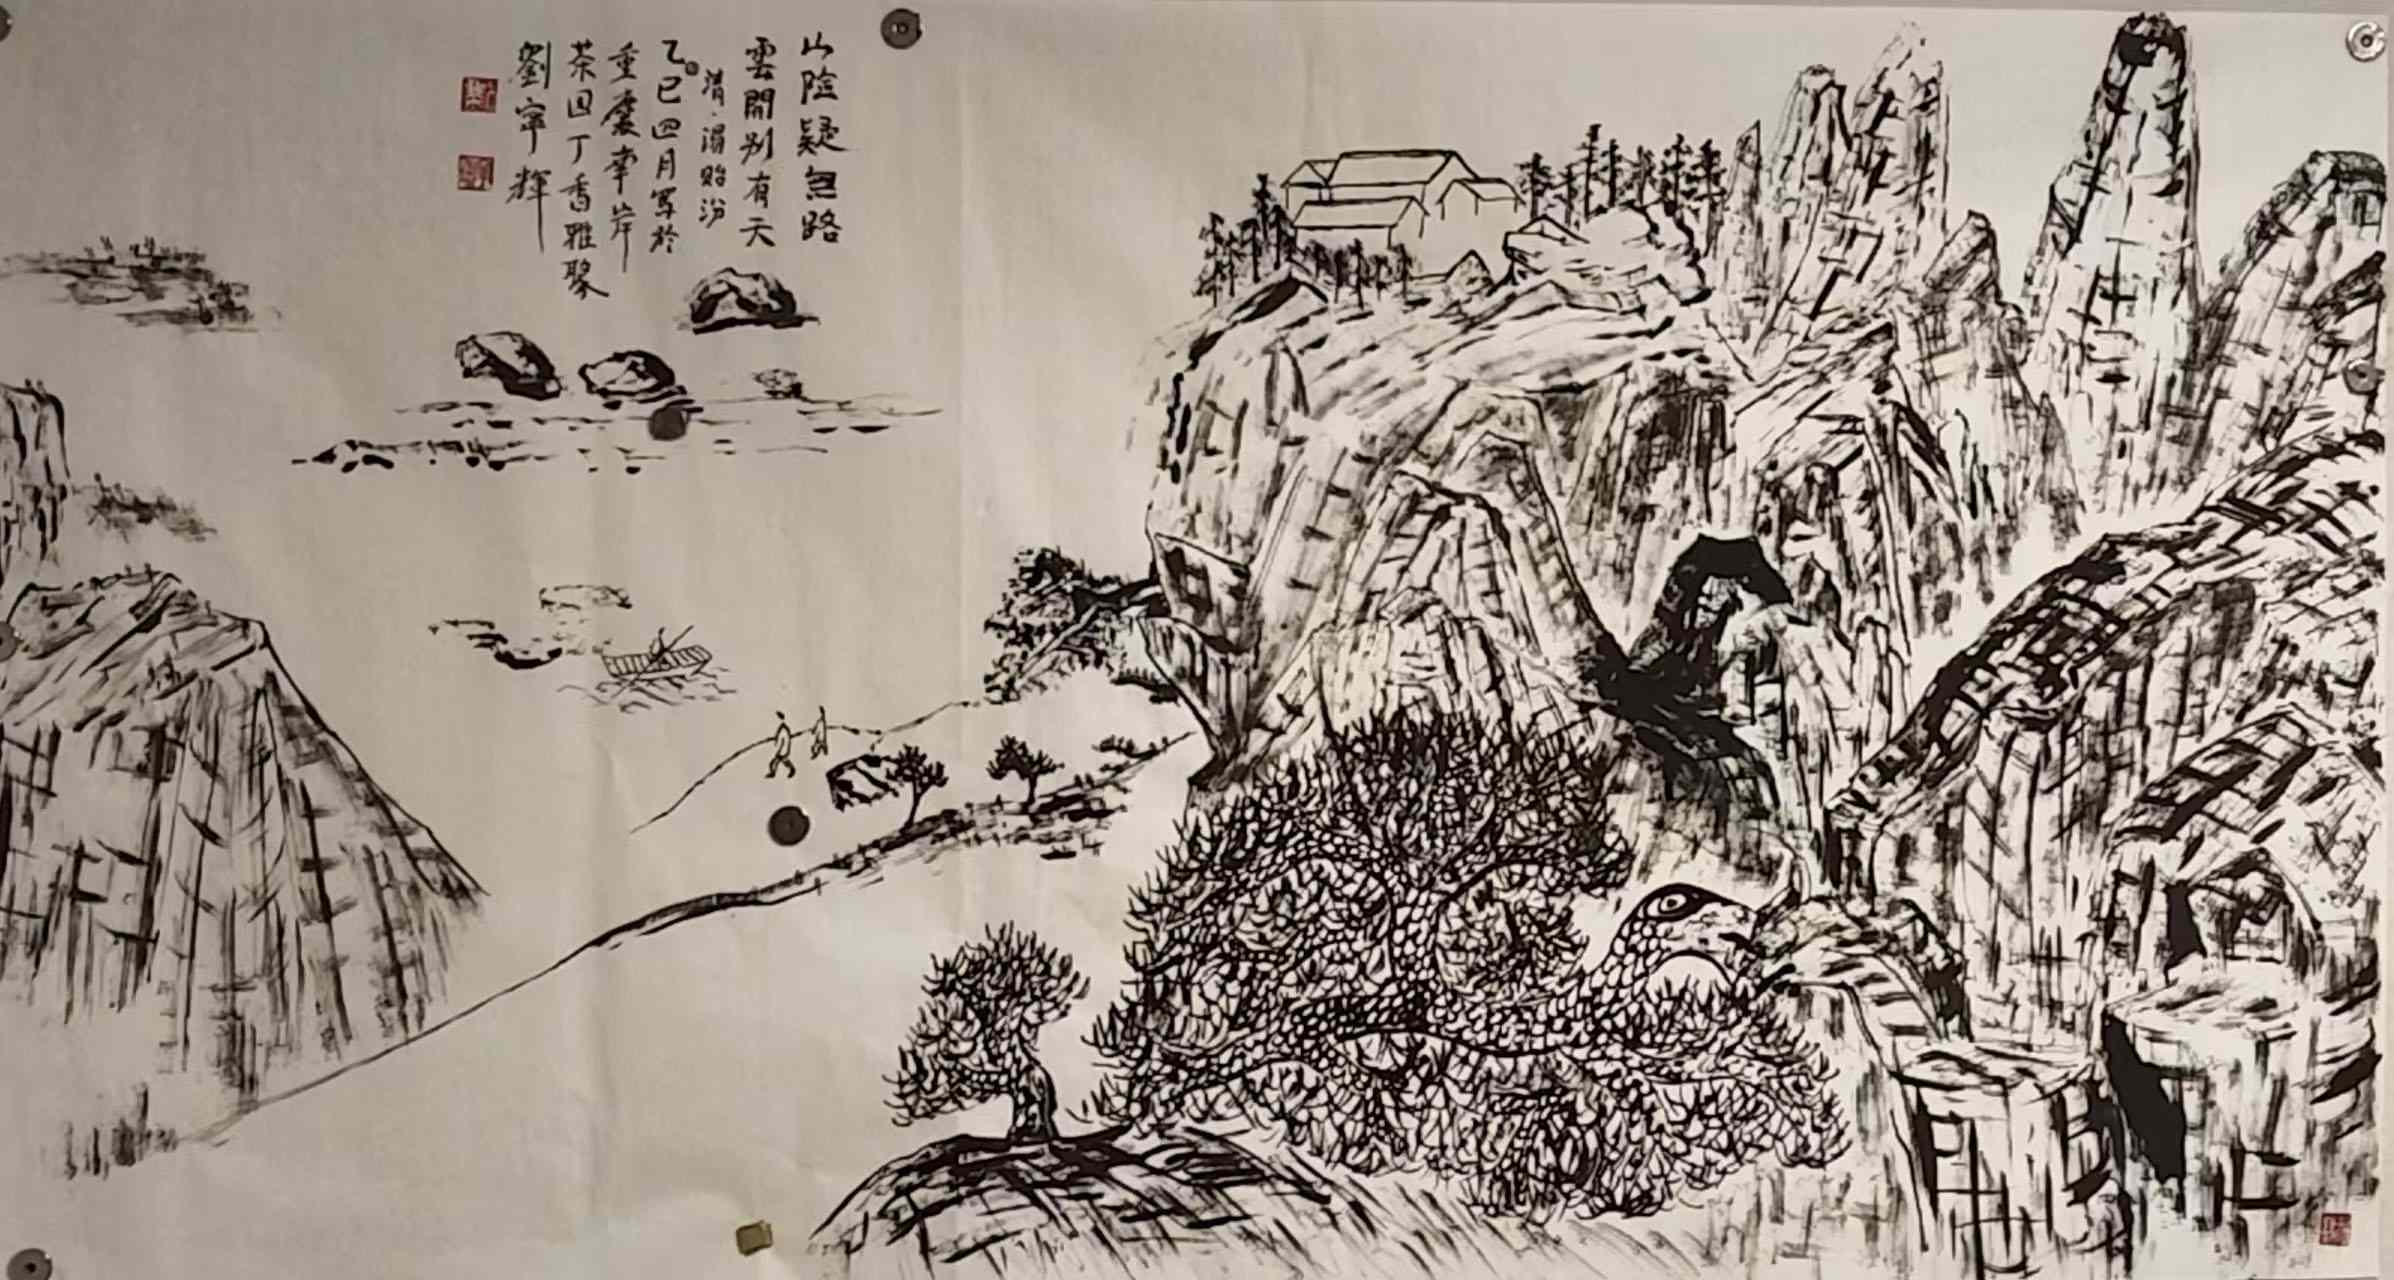 山险疑无路
雲開别有天
清·湯貽汾
乙巳四月写於
重慶南岸
茶园丁香雅聚
劉寧輝